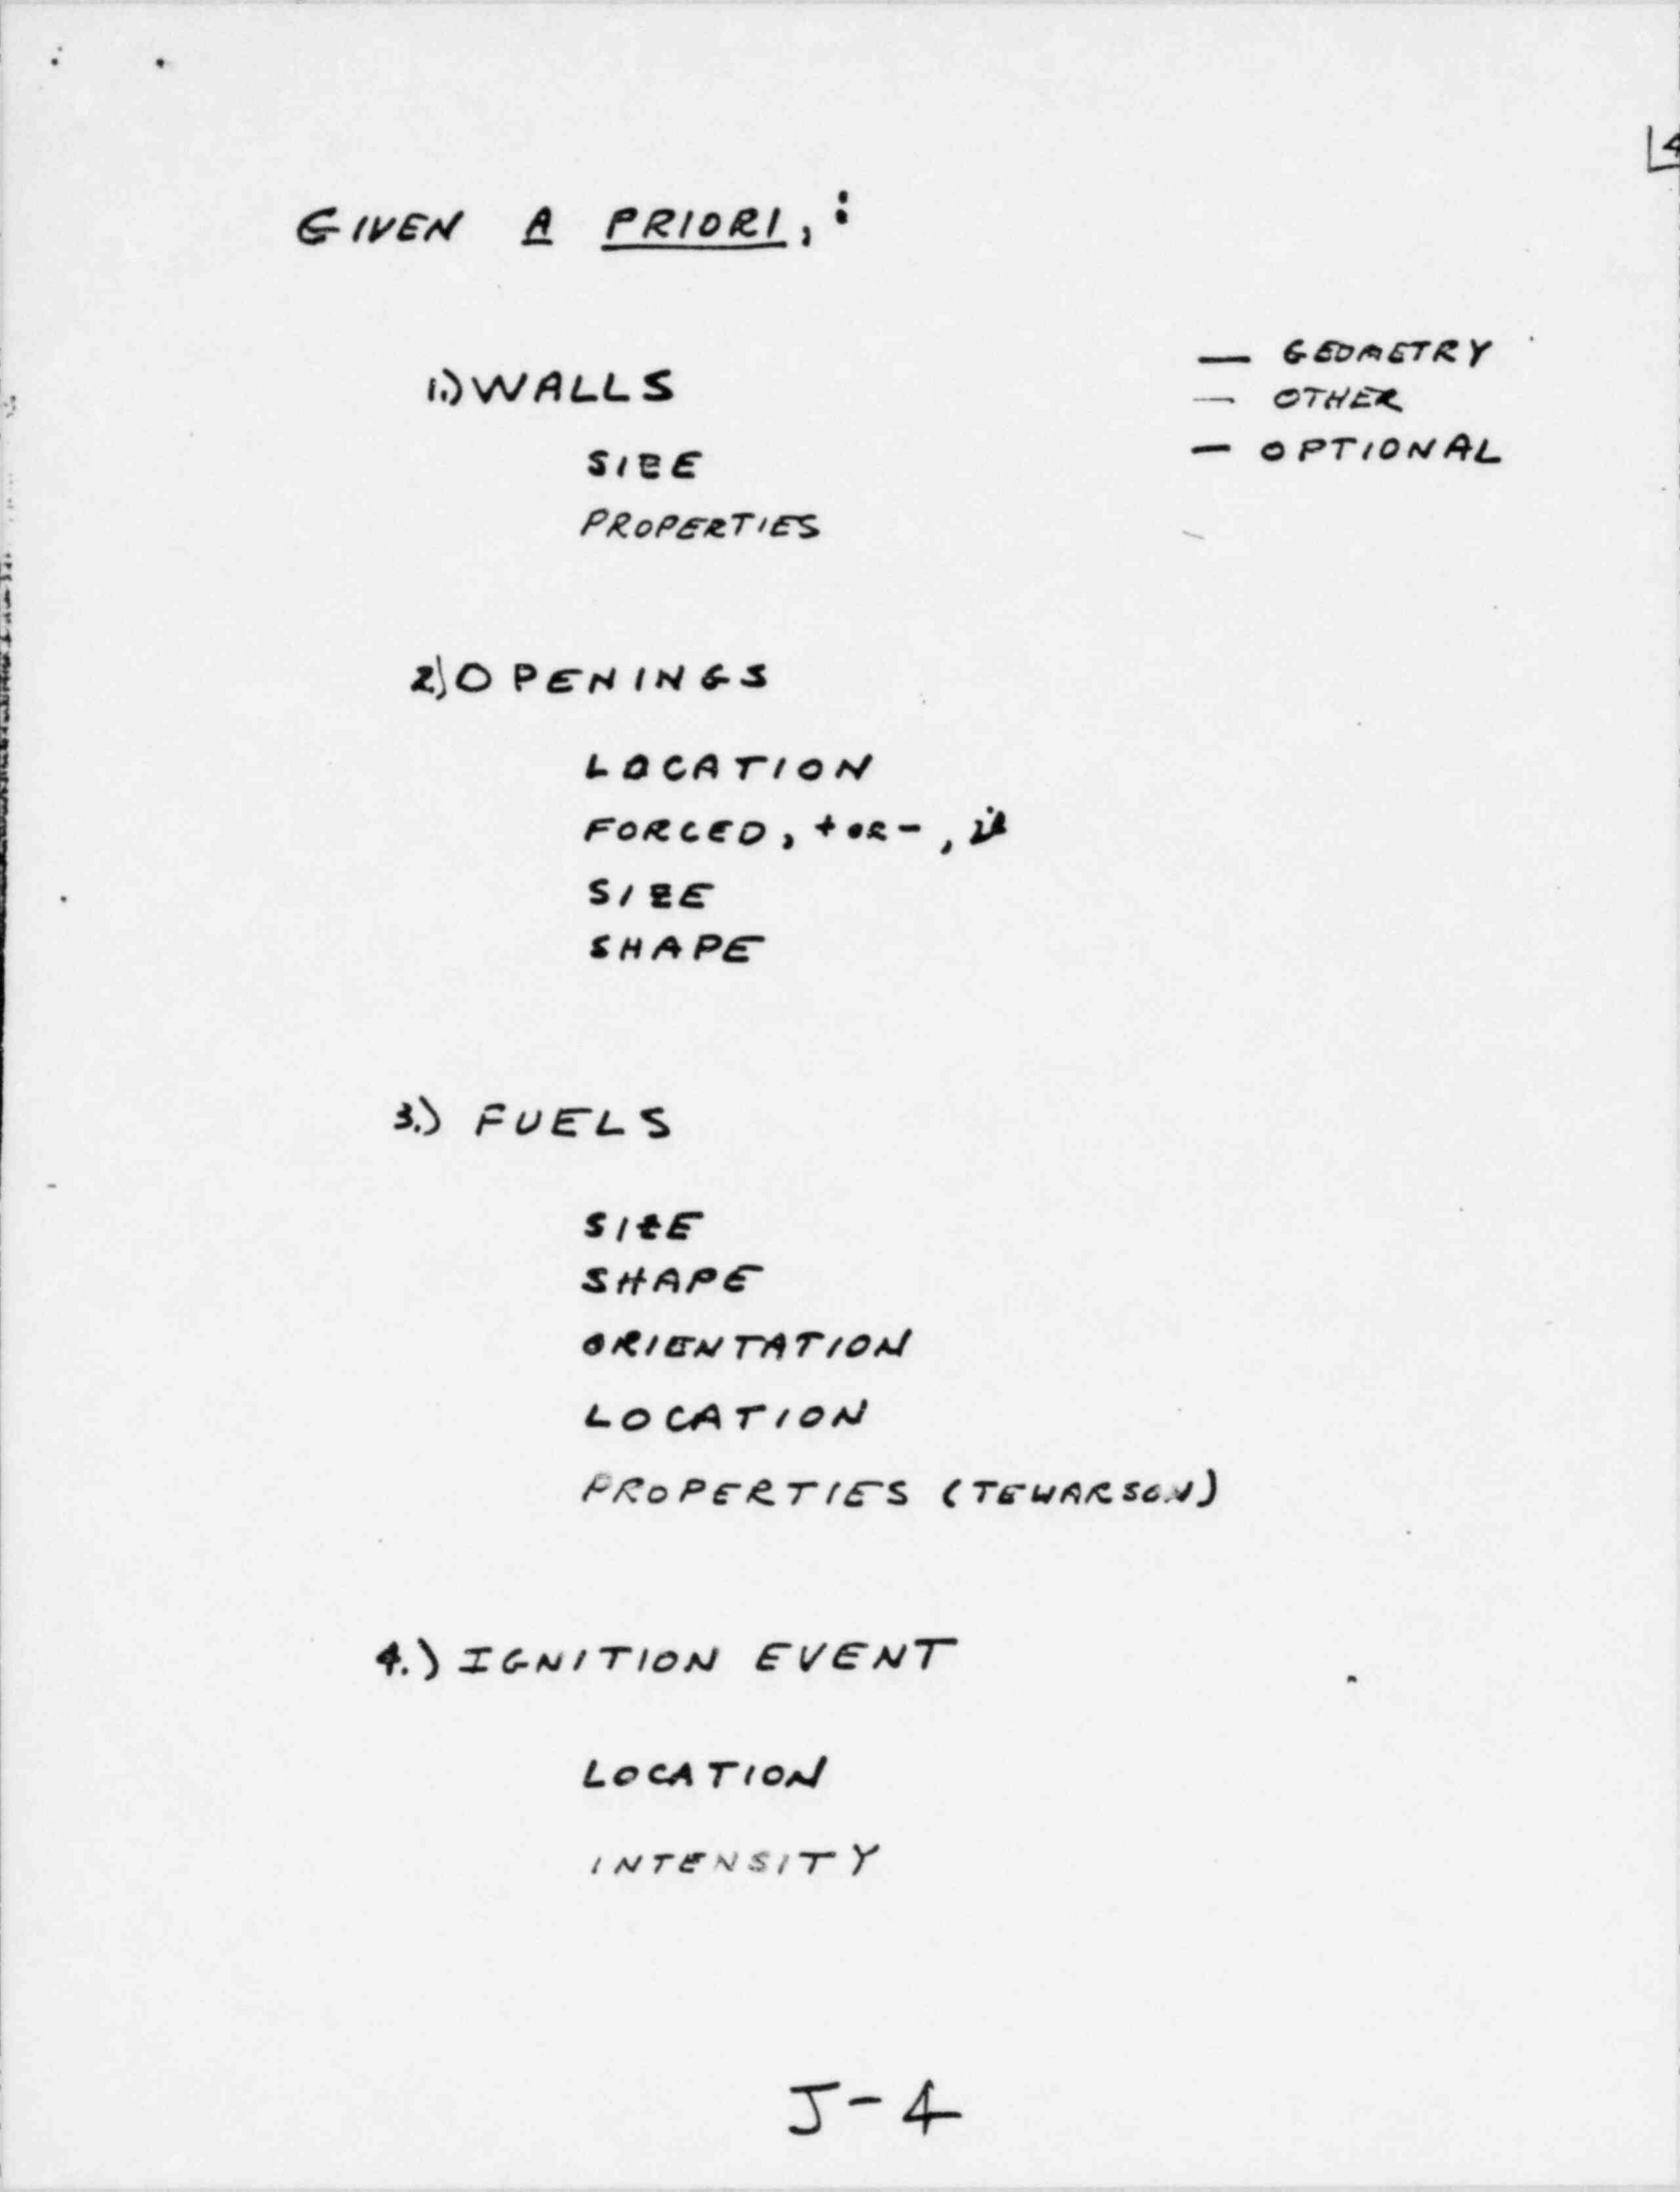 4
GIVEN A PRIORI, :
— GEOMETRY
— OTHER
— OPTIONAL
1.) WALLS
SIZE
PROPERTIES
2.) OPENINGS
LOCATION
FORCED, + OR - ,
SIZE
SHAPE
3.) FUELS
SIZE
SHAPE
ORIENTATION
LOCATION
PROPERTIES (TEWARSON)
4.) IGNITION EVENT
LOCATION
INTENSITY
J-4